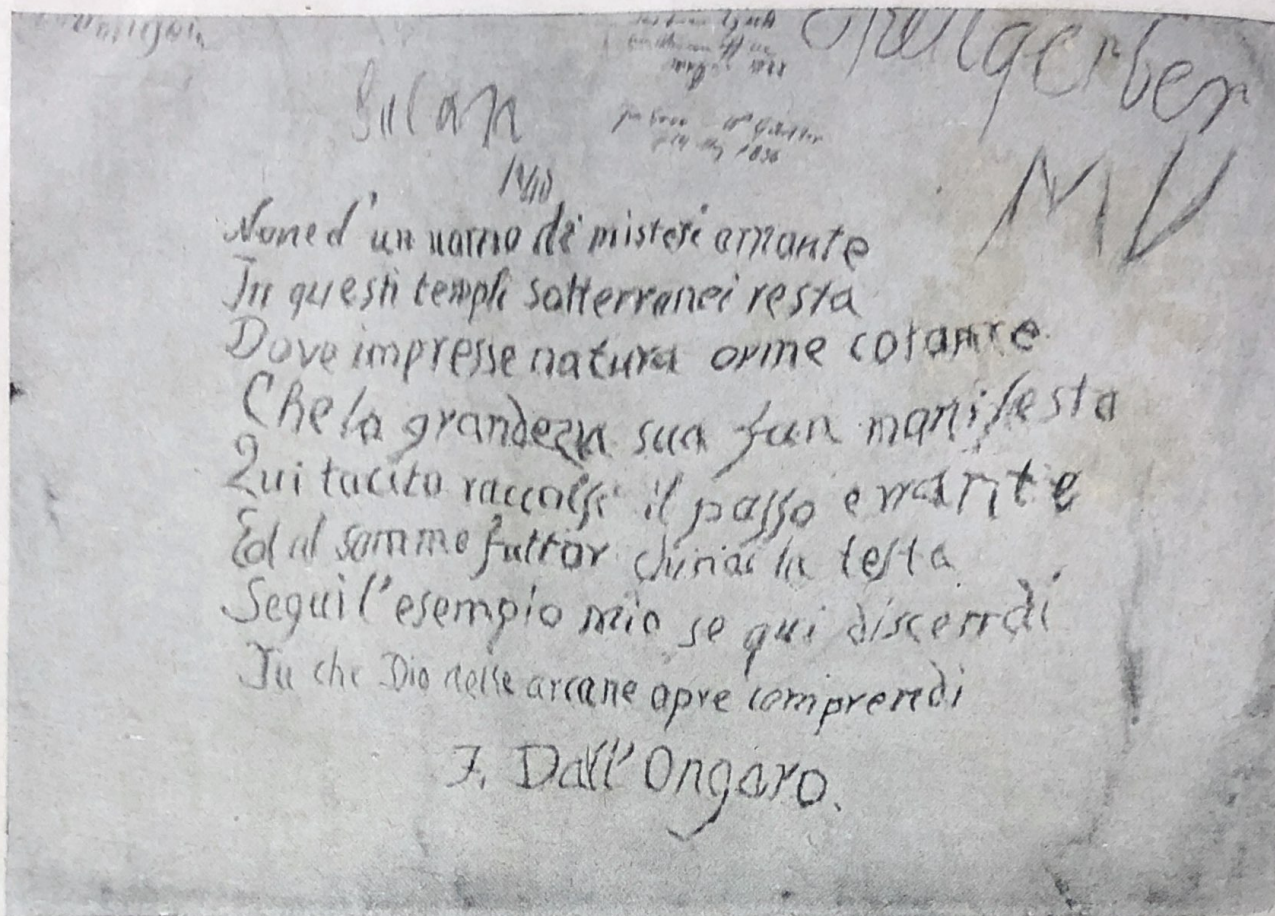 MV
Nome d'un uomo di misteri amante
In questi templi sotterranei resta
Dove impresse natura orme cotante
Che la grandezza sua fan manifesta
Qui tacito raccolsi il passo errante
Ed al sommo fattor chinai la testa
Segui l'esempio mio se qui discendi
Tu che Dio nelle arcane opre comprendi
F. Dall'Ongaro.